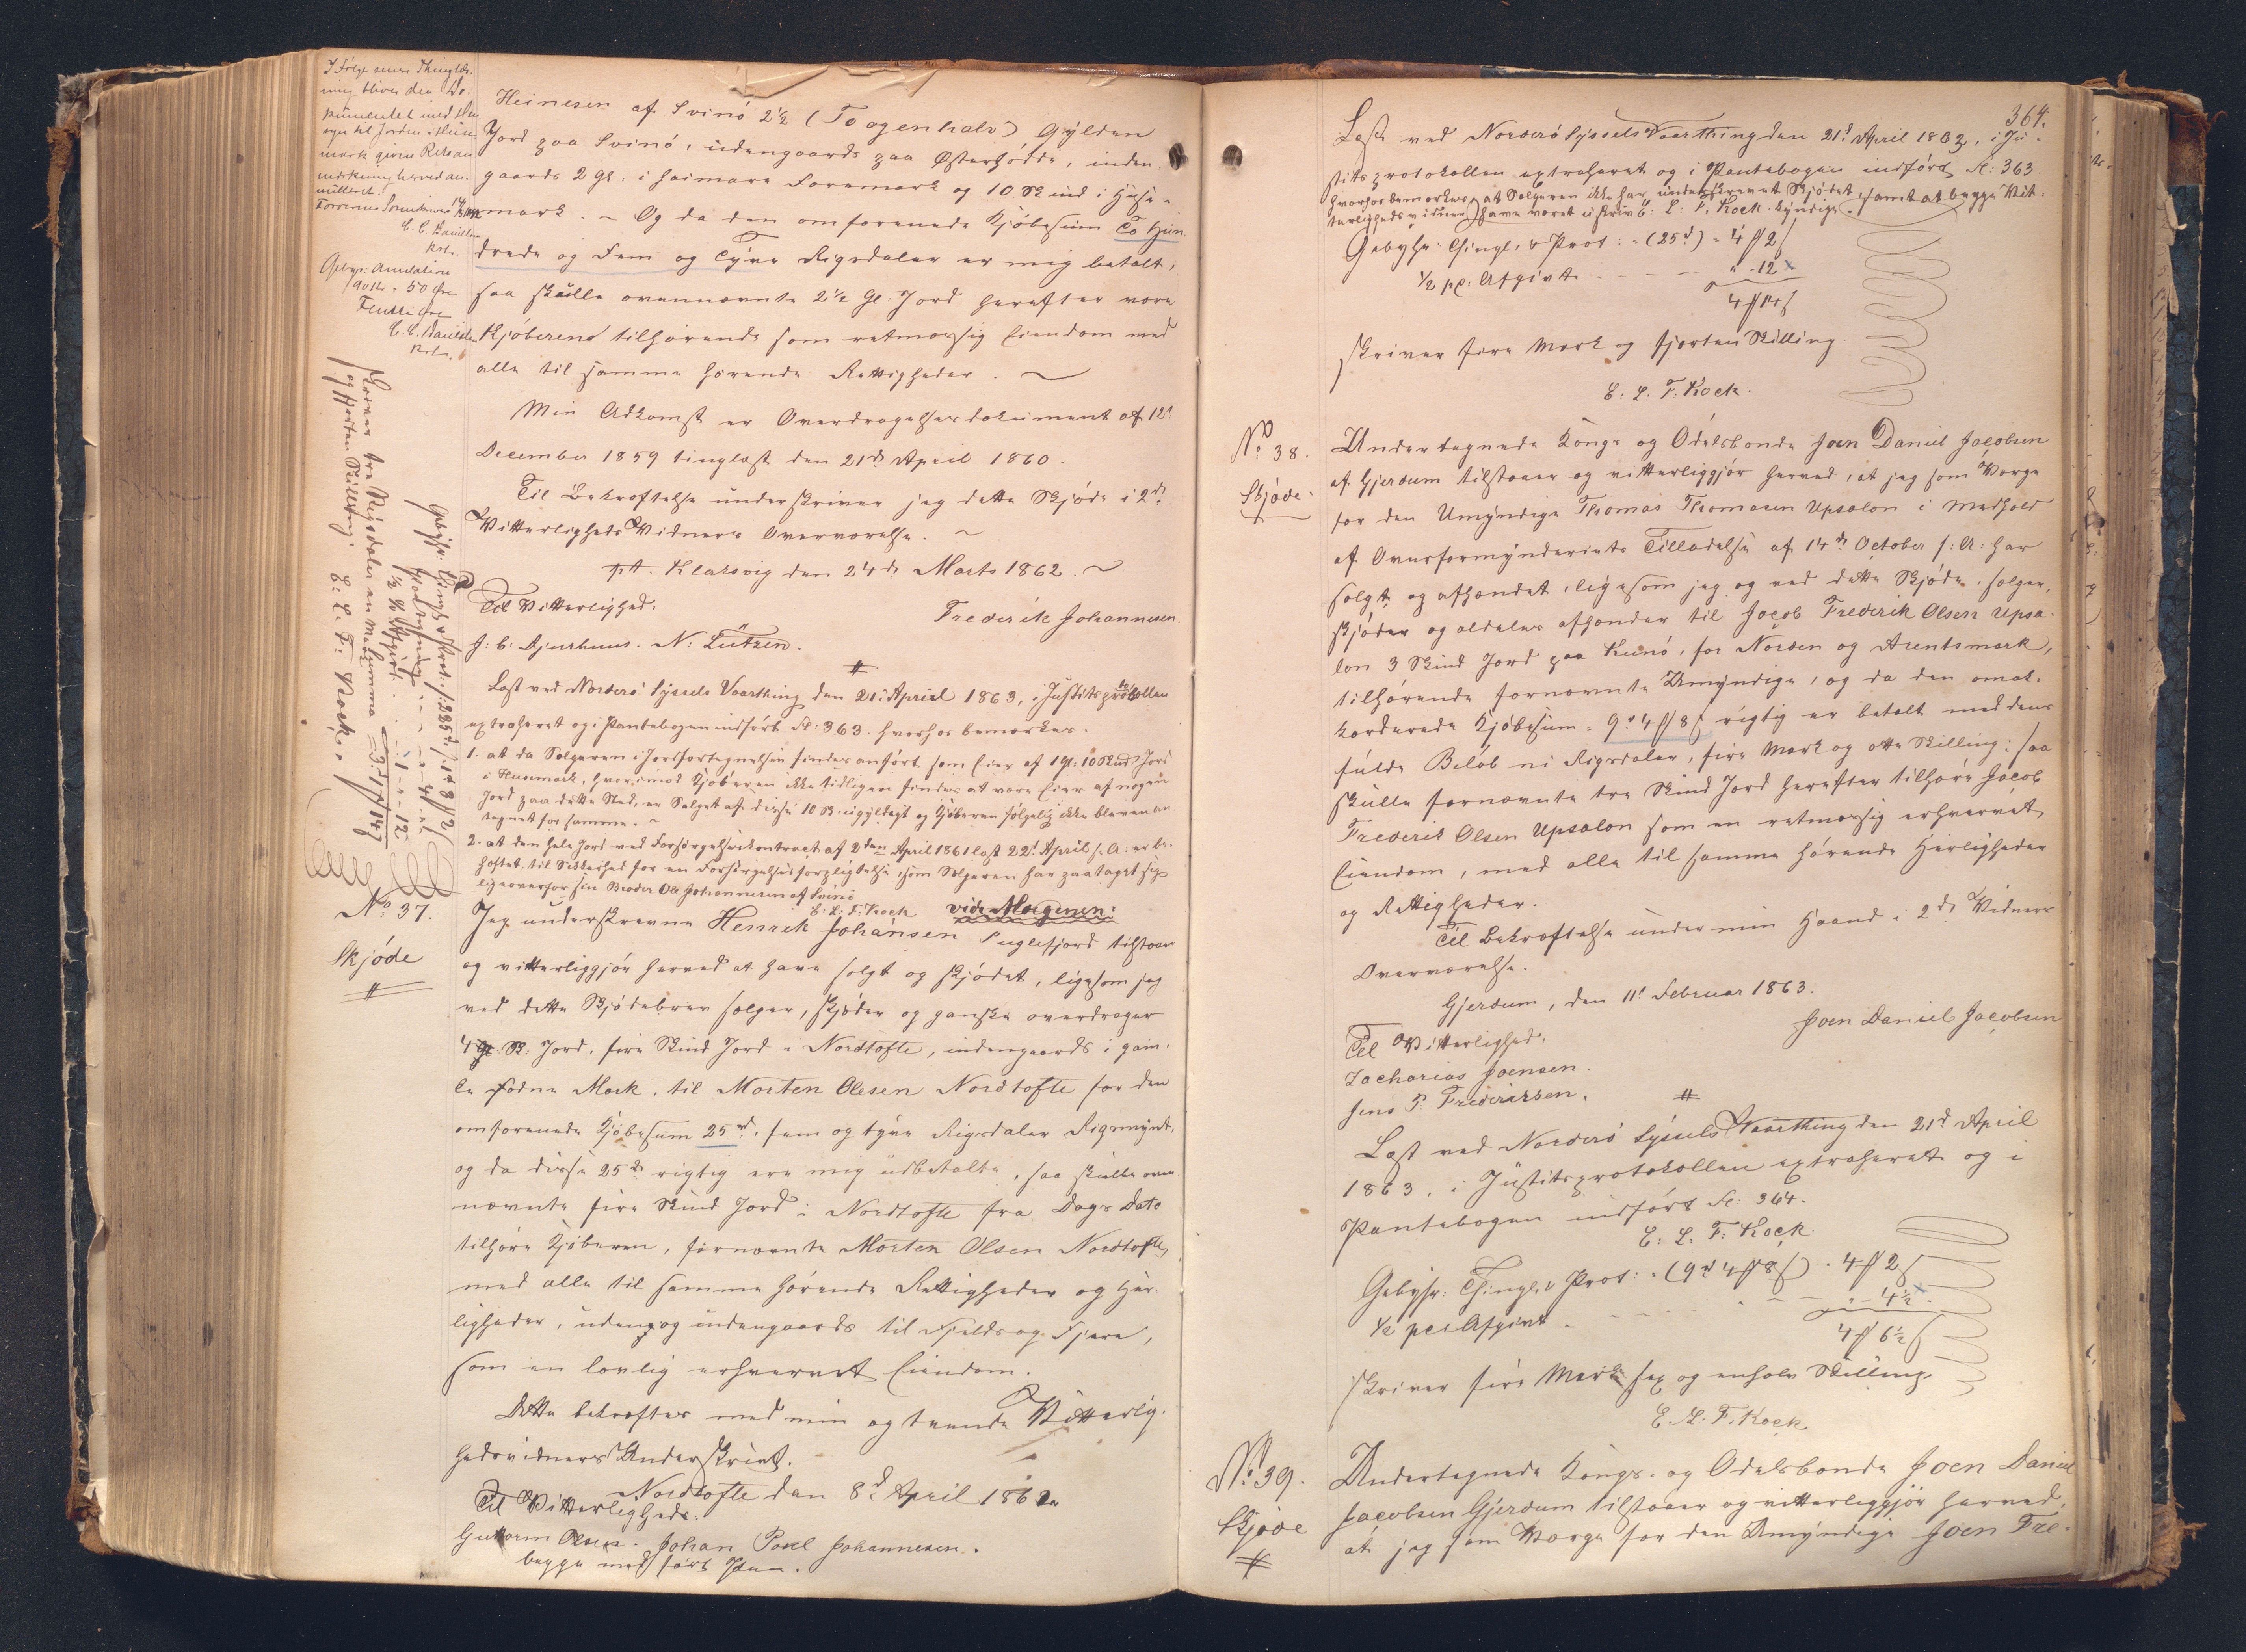 I Følge senere Thinglæs-
ning bliver der Do-
kumentet med Hen-
syn til Jorden i Huse-
mark given Retsan-
mærkning herved an-
nulleret.
C. C. Danielsen
Kst.
Gebyr: Annotation
50 Øre
Femti Øre
C. C. Danielsen
Kst.
Gebyhr: Tingl. & Prot. (225 rd) 1 rd 3 ₰ 2 ß
½ % Afgivt . . 1 - " - 12
Skriver tre Rigsdaler en Mark
og fjorten Skilling. E: L: F: Kock.
Heinesen af Svinö 2½ (To og en halv) Gylden
Jord paa Svinö, udengaards paa Østerhödde, inden-
gaards 2 Gl. i heimare Foremark og 10 Sk ind i Huse-
mark. - Og da den omforenede Kjøbesum To Hun-
drede og Fem og Tyve Rigsdaler er mig betalt,
saa skulle ovennævnte 2½ Gl: Jord herefter være
Kjöberens tilhørende som retmæssig Eiendom med
alle til samme hörende Rettigheder.
Min Adkomst er Overdragelsesdokument af 12t
December 1859 tinglæst den 21de April 1860.
Til Bekræftelse underskriver jeg dette Skjöde i 2de
Vitterligheds Vidners Overværelse.
pt. Klaksvig den 24de Marts 1862.
Til Vitterlighed:
Frederik Johannesen.
J: C: Djurhuus. N: Lützen.
Læst ved Norderö Syssels Vaarthing den 21 April 1863, i Justitsprotokollen
extraheret og i Pantebogen indført Fl: 363. hvorhos bemærkes.
1. at da Sælgeren i Jordfortegnelsen findes anført som Eier af 1 Gl: 10 Skind Jord
i Husemark, hvorimod Kjöberen ikke tidligere findes at være Eier af nogen
Jord paa dette Sted, er Salget af disse 10 Sk. ugyldigt og Kjöberen følgelig ikke bleven an-
tegnet for samme.
2. at den hele Jord ved Forsørgelseskontract af 2den April 1861 læst 22d April s. A: er be-
hæftet til Sikkerhed for en Forsørgelsesforpligtelse, som Sælgeren har paataget sig
ligeoverfor sin Broder Ole Johannesen af Svinö
E: L: F: Kock vide Margenen:
No 37.
Skjöde
Jeg underskrevne Henrik Johansen Fuglefjord tilstaar
og vitterliggjör herved at have solgt og skjödet, ligesom jeg
ved dette Skjödebrev sælger, skjöder og ganske overdrager
4 Sk: Jord, fire Skind Jord i Nordtofte, indengaards i gam-
le Mark, til Morten Olesen Nordtofte for den
omforenede Kjöbesum 25 rd, fem og tyve Rigsdaler Rigsmynt,
og da disse 25 rd rigtig ere mig udbetalte, saa skulle oven
nævnte fire Skind Jord i Nordtofte fra Dags Dato
tilhøre Kjöberen, førnævnte Morten Olsen Nordtofte,
med alle til samme hörende Rettigheder og Her-
ligheder, uden og indengaards til Fjelds og Fjære,
som en lovlig erhvervet Eiendom.
Dette bekræftes med min og tvende Vitterlig-
hedsvidners Underskrivt.
Nordtofte den 8d April 1862
Til Vitterligheds:
Guttorm Olsen. Johan Poul Johannesen.
begge med ført Pen.
364.
Læst ved Norderö Syssels Vaarthing den 21d April 1863, i Ju-
stitsprotokollen extraheret og i Pantebogen indført Fl: 363
hvorhos bemærkes, at Sælgeren ikke har underskrevet Skjödet, samt at begge Vit-
terligheds vidner have været uskriv- E: L: F: Kock. kyndige.
Gebyhr: Thingl. & Prot: (25 rd) - 4 ₰ 2 ß
½ pC: Afgivt - - - " - 12 "
4 ₰ 14 ß
skriver fire Mark og fjorten Skilling.
E. L. F. Kock.
No 38.
Skjöde.
Undertegnede Konge og Odelsbonde Joen Daniel Jacobsen
af Gjerdum tilstaaer og vitterliggjör herved, at jeg som Værge
for den Umyndige Thomas Thomasen Upsalon i Medhold
af Overformynderiets Tilladelse af 14de October f: A: har
solgt og afhændet, ligesom jeg og ved dette Skjöde, sælger,
skjöder og aldeles afhænder til Jacob Frederik Olsen Upsa-
lon 3 Skind Jord paa Kunö, for Norden og Arentsmark,
tilhörende fornævnte Umyndige, og da den omak-
korderede Kjöbesum - 9 rd 4 ₰ 8 ß rigtig er betalt med dens
fulde Belöb ni Rigsdaler, fire Mark og otte Skilling: saa
skulle fornævnte tre Skind Jord herefter tilhöre Jacob
Frederik Olsen Upsalon som en retmæssig erhvervet
Eiendom, med alle til samme hörende Herligheder
og Rettigheder.
Til Bekræftelse under min Haand i 2de Vidners
Overværelse.
Gjerdum, den 11t Februar 1863.
Joen Daniel Jacobsen
Til Vitterlighed:
Zacharias Joensen.
Jens P: Frederiksen.
Læst ved Norderö Syssels Vaarthing den 21d April
1863, i Justitsprotokollen extraheret og i
Pantebogen indført Fl: 364.
E: L: F: Kock.
Gebyhr: Thingl. & Prot: (9 rd 4 ₰ 8 ß) - 4 ₰ 2 ß
½ pct Afgivt - - - " - 4½ -
4 ₰ 6½ ß
skriver fire Mark sex og enhalv Skilling
E. L. F. Kock
No 39.
Skjöde
Undertegnede Konge- og Odelsbonde Joen Daniel
Jacobsen Gjerdum tilstaaer og vitterliggjör herved,
at jeg som Værge for den Umyndige Joen Fre-